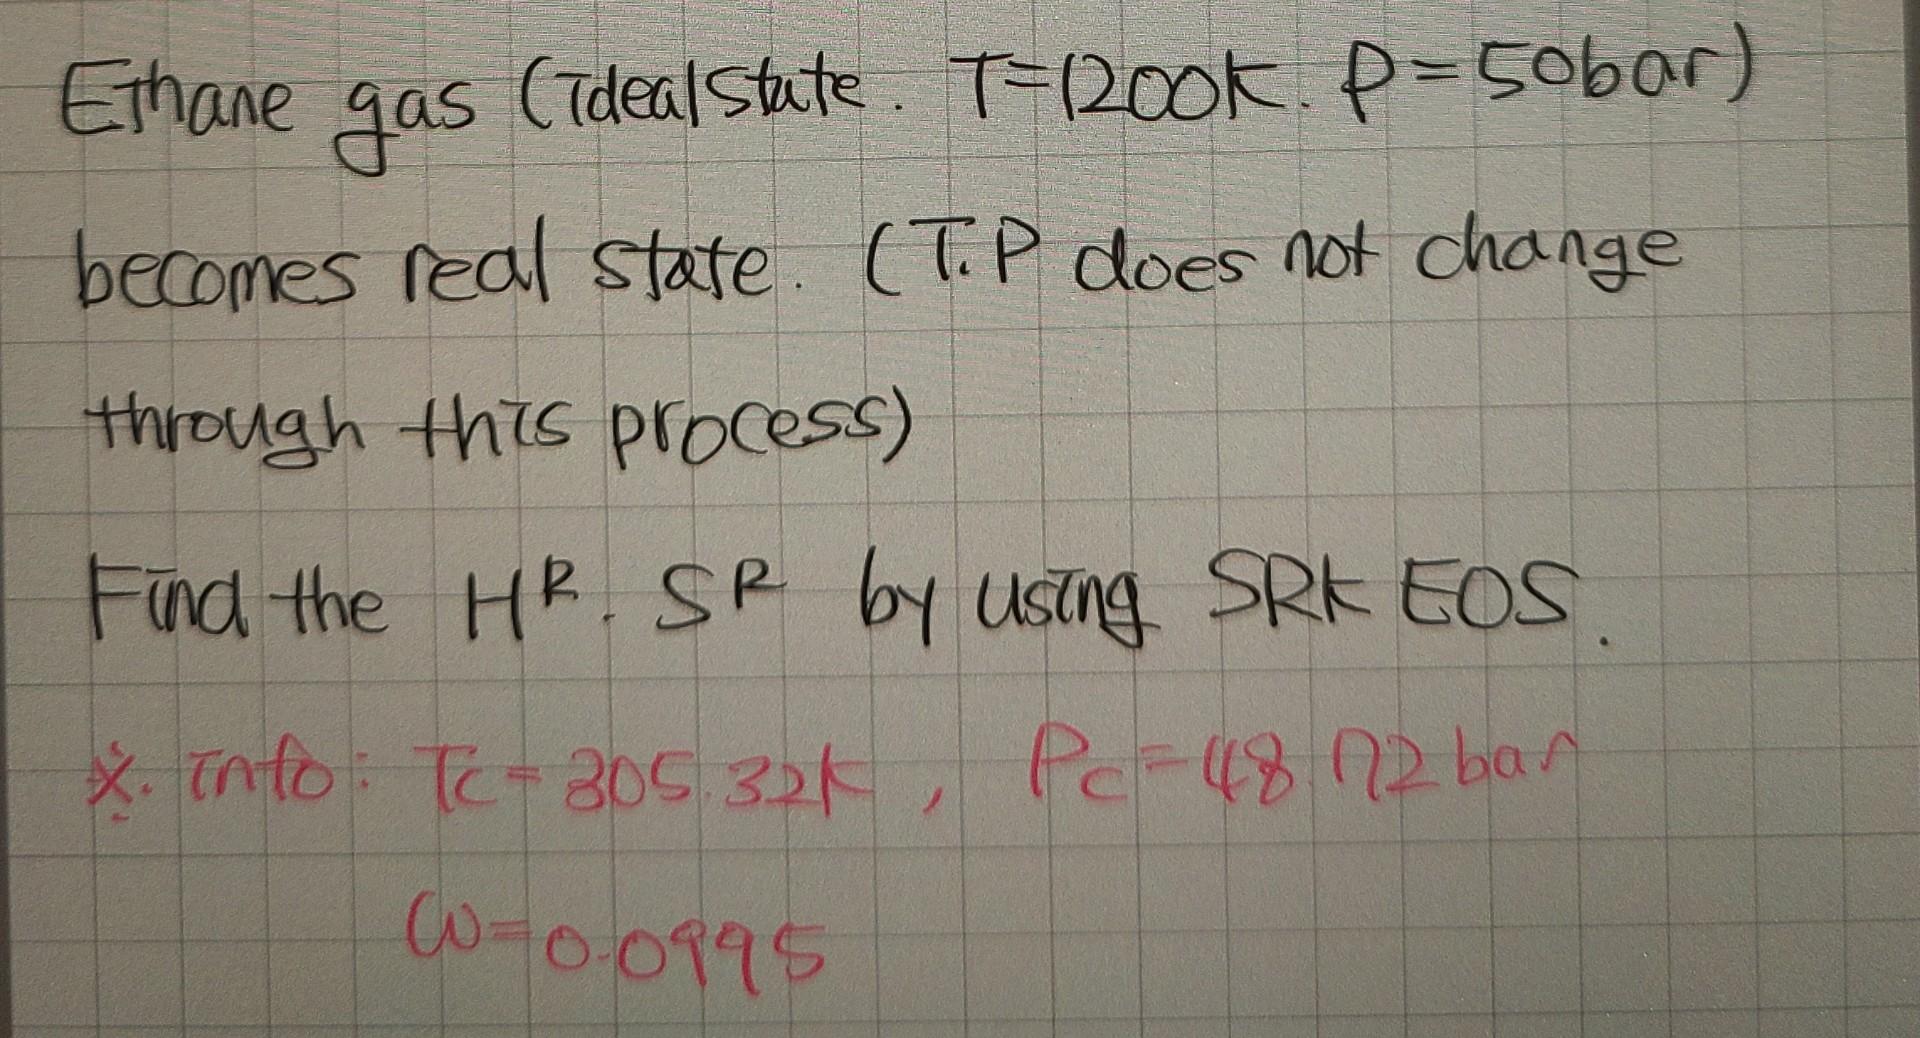 Ethane gas (ideal state. T=1200K. P=50bar)
becomes real state. (T.P does not change
through this process)
Find the H^R. S^R by using SRK EOS.
※. info: Tc=305.32K, Pc=48.72bar
ω=0.0995